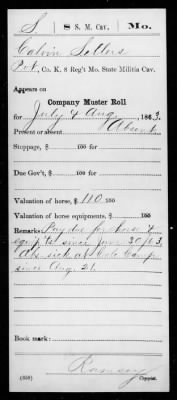 S. 8 S. M. Cav. Mo.
Calvin Sellers
Pvt, Co. K. 8 Reg't Mo. State Militia Cav.
Appears on
Company Muster Roll
for July & Aug, 1863.
Present or absent Absent
Stoppage, $ 100 for
Due Gov't, $ 100 for
Valuation of horse, $ 110 100
Valuation of horse equipments, $ 100
Remarks: Pay due for horse &
equipts since June 30/63.
Abs sick at Cole Camp
since Aug. 21.
Book mark:
Ramsey
(358) Copyist.